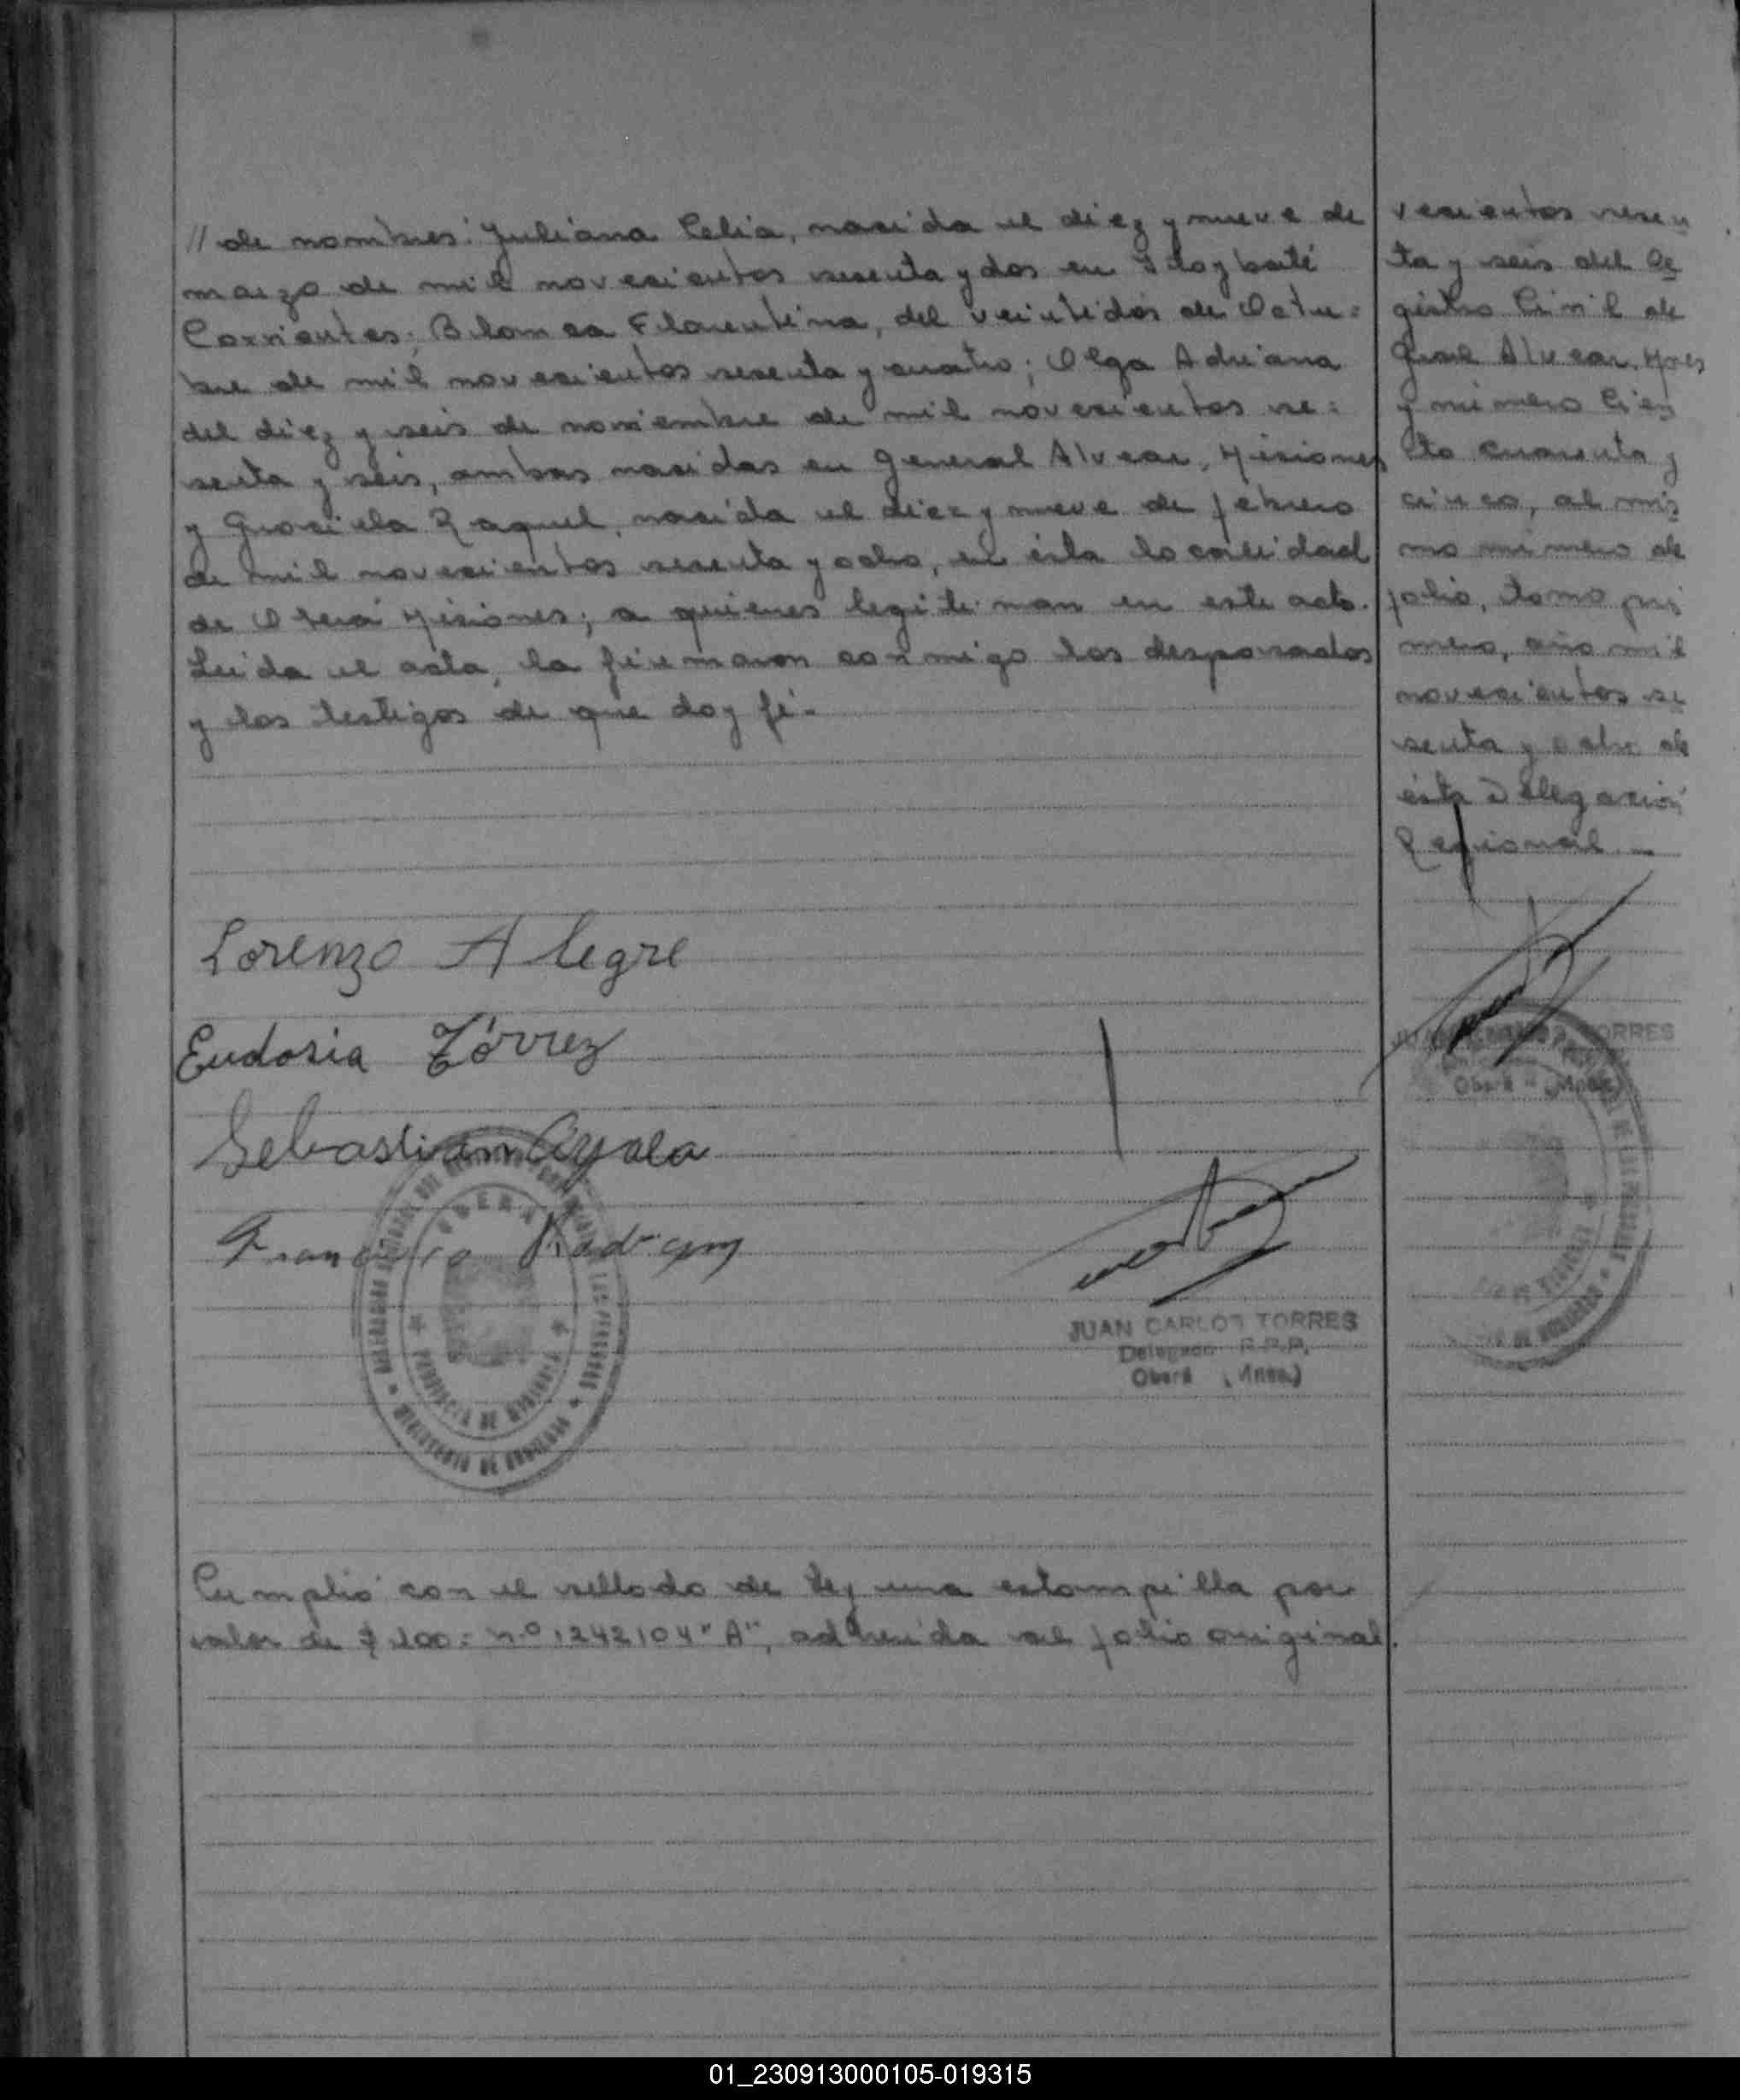 // de nombres: Juliana Celia, nacida el diez y nueve de
marzo de mil novecientos sesenta y dos en Itaybaté
Corrientes; Blanca Florentina, del veintidós de Octu=
bre de mil novecientos sesenta y cuatro; Olga Adriana
del diez y seis de noviembre de mil novecientos se=
senta y seis, ambas nacidas en General Alvear, Misiones
y Graciela Raquel, nacida el diez y nueve de febrero
de mil novecientos sesenta y ocho, en ésta localidad
de Oberá Misiones; a quiénes legitiman en este acto.
Leída el acta, la firmaron conmigo los desposados
y los testigos de que doy fé.-
Lorenzo Alegre
Eudosia Tórrez
Sebastian Ayala
Francisco
JUAN CARLOS TORRES
Delegado R.P.P.
Oberá (Mnes.)
OBERA
PROVINCIA DE MISIONES
MINISTERIO DE GOBIERNO
Cumplió con el sellado de ley una estampilla por
valor de $ 200= nº 1242104 "A", adherida al folio original.
vecientos sesen
ta y seis del Re
gistro Civil de
Gral Alvear, Mnes
y número Cien
to cuarenta y
cinco, al mis
mo número de
folio, tomo pri
mero, año mil
novecientos se
senta y ocho de
ésta Delegación
Regional.-
JUAN CARLOS TORRES
Oberá (Mnes.)
01_230913000105-019315